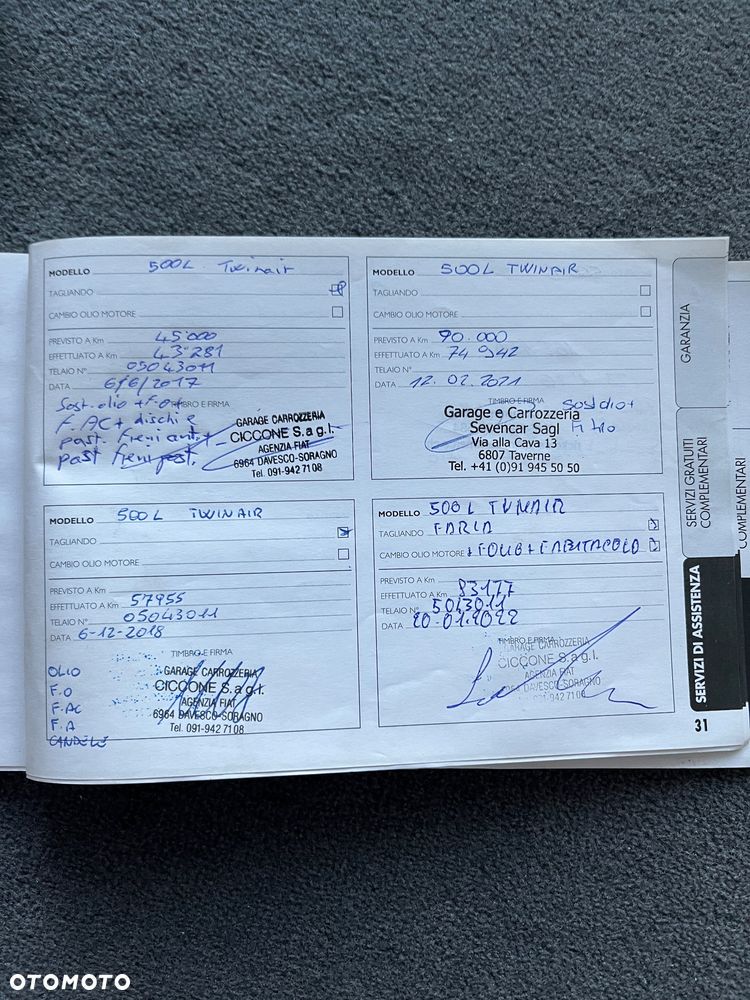 MODELLO 500L Twinair
TAGLIANDO
CAMBIO OLIO MOTORE
PREVISTO A Km 45'000
EFFETTUATO A Km 43'281
TELAIO N° 05043011
DATA 6/6/2017
TIMBRO E FIRMA
Sost. olio + F.O +
F. AC + dischi e
past. freni ant. +
past freni post.
GARAGE CARROZZERIA
CICCONE S.a g.l.
AGENZIA FIAT
6964 DAVESCO-SORAGNO
Tel. 091-942 71 08
MODELLO 500L TWINAIR
TAGLIANDO
CAMBIO OLIO MOTORE
PREVISTO A Km 90.000
EFFETTUATO A Km 74 942
TELAIO N°
DATA 12.02.2021
TIMBRO E FIRMA
Garage e Carrozzeria
Sevencar Sagl
Via alla Cava 13
6807 Taverne
Tel. +41 (0)91 945 50 50
MODELLO 500L TWINAIR
TAGLIANDO
CAMBIO OLIO MOTORE
PREVISTO A Km
EFFETTUATO A Km 57955
TELAIO N° 05043011
DATA 6-12-2018
TIMBRO E FIRMA
OLIO
F.O
F.AC
F.A
CANDELE
GARAGE CARROZZERIA
CICCONE S.a g.l.
AGENZIA FIAT
6964 DAVESCO-SORAGNO
Tel. 091-942 71 08
MODELLO 500L
TAGLIANDO
CAMBIO OLIO MOTORE
PREVISTO A Km
EFFETTUATO A Km 83177
TELAIO N° 5043011
DATA 20-01-2022
TIMBRO E FIRMA
GARAGE CARROZZERIA
CICCONE S.a g.l.
AGENZIA FIAT
DAVESCO-SORAGNO
GARANZIA
SERVIZI GRATUITI
COMPLEMENTARI
COMPLEMENTARI
SERVIZI DI ASSISTENZA
31
OTOMOTO